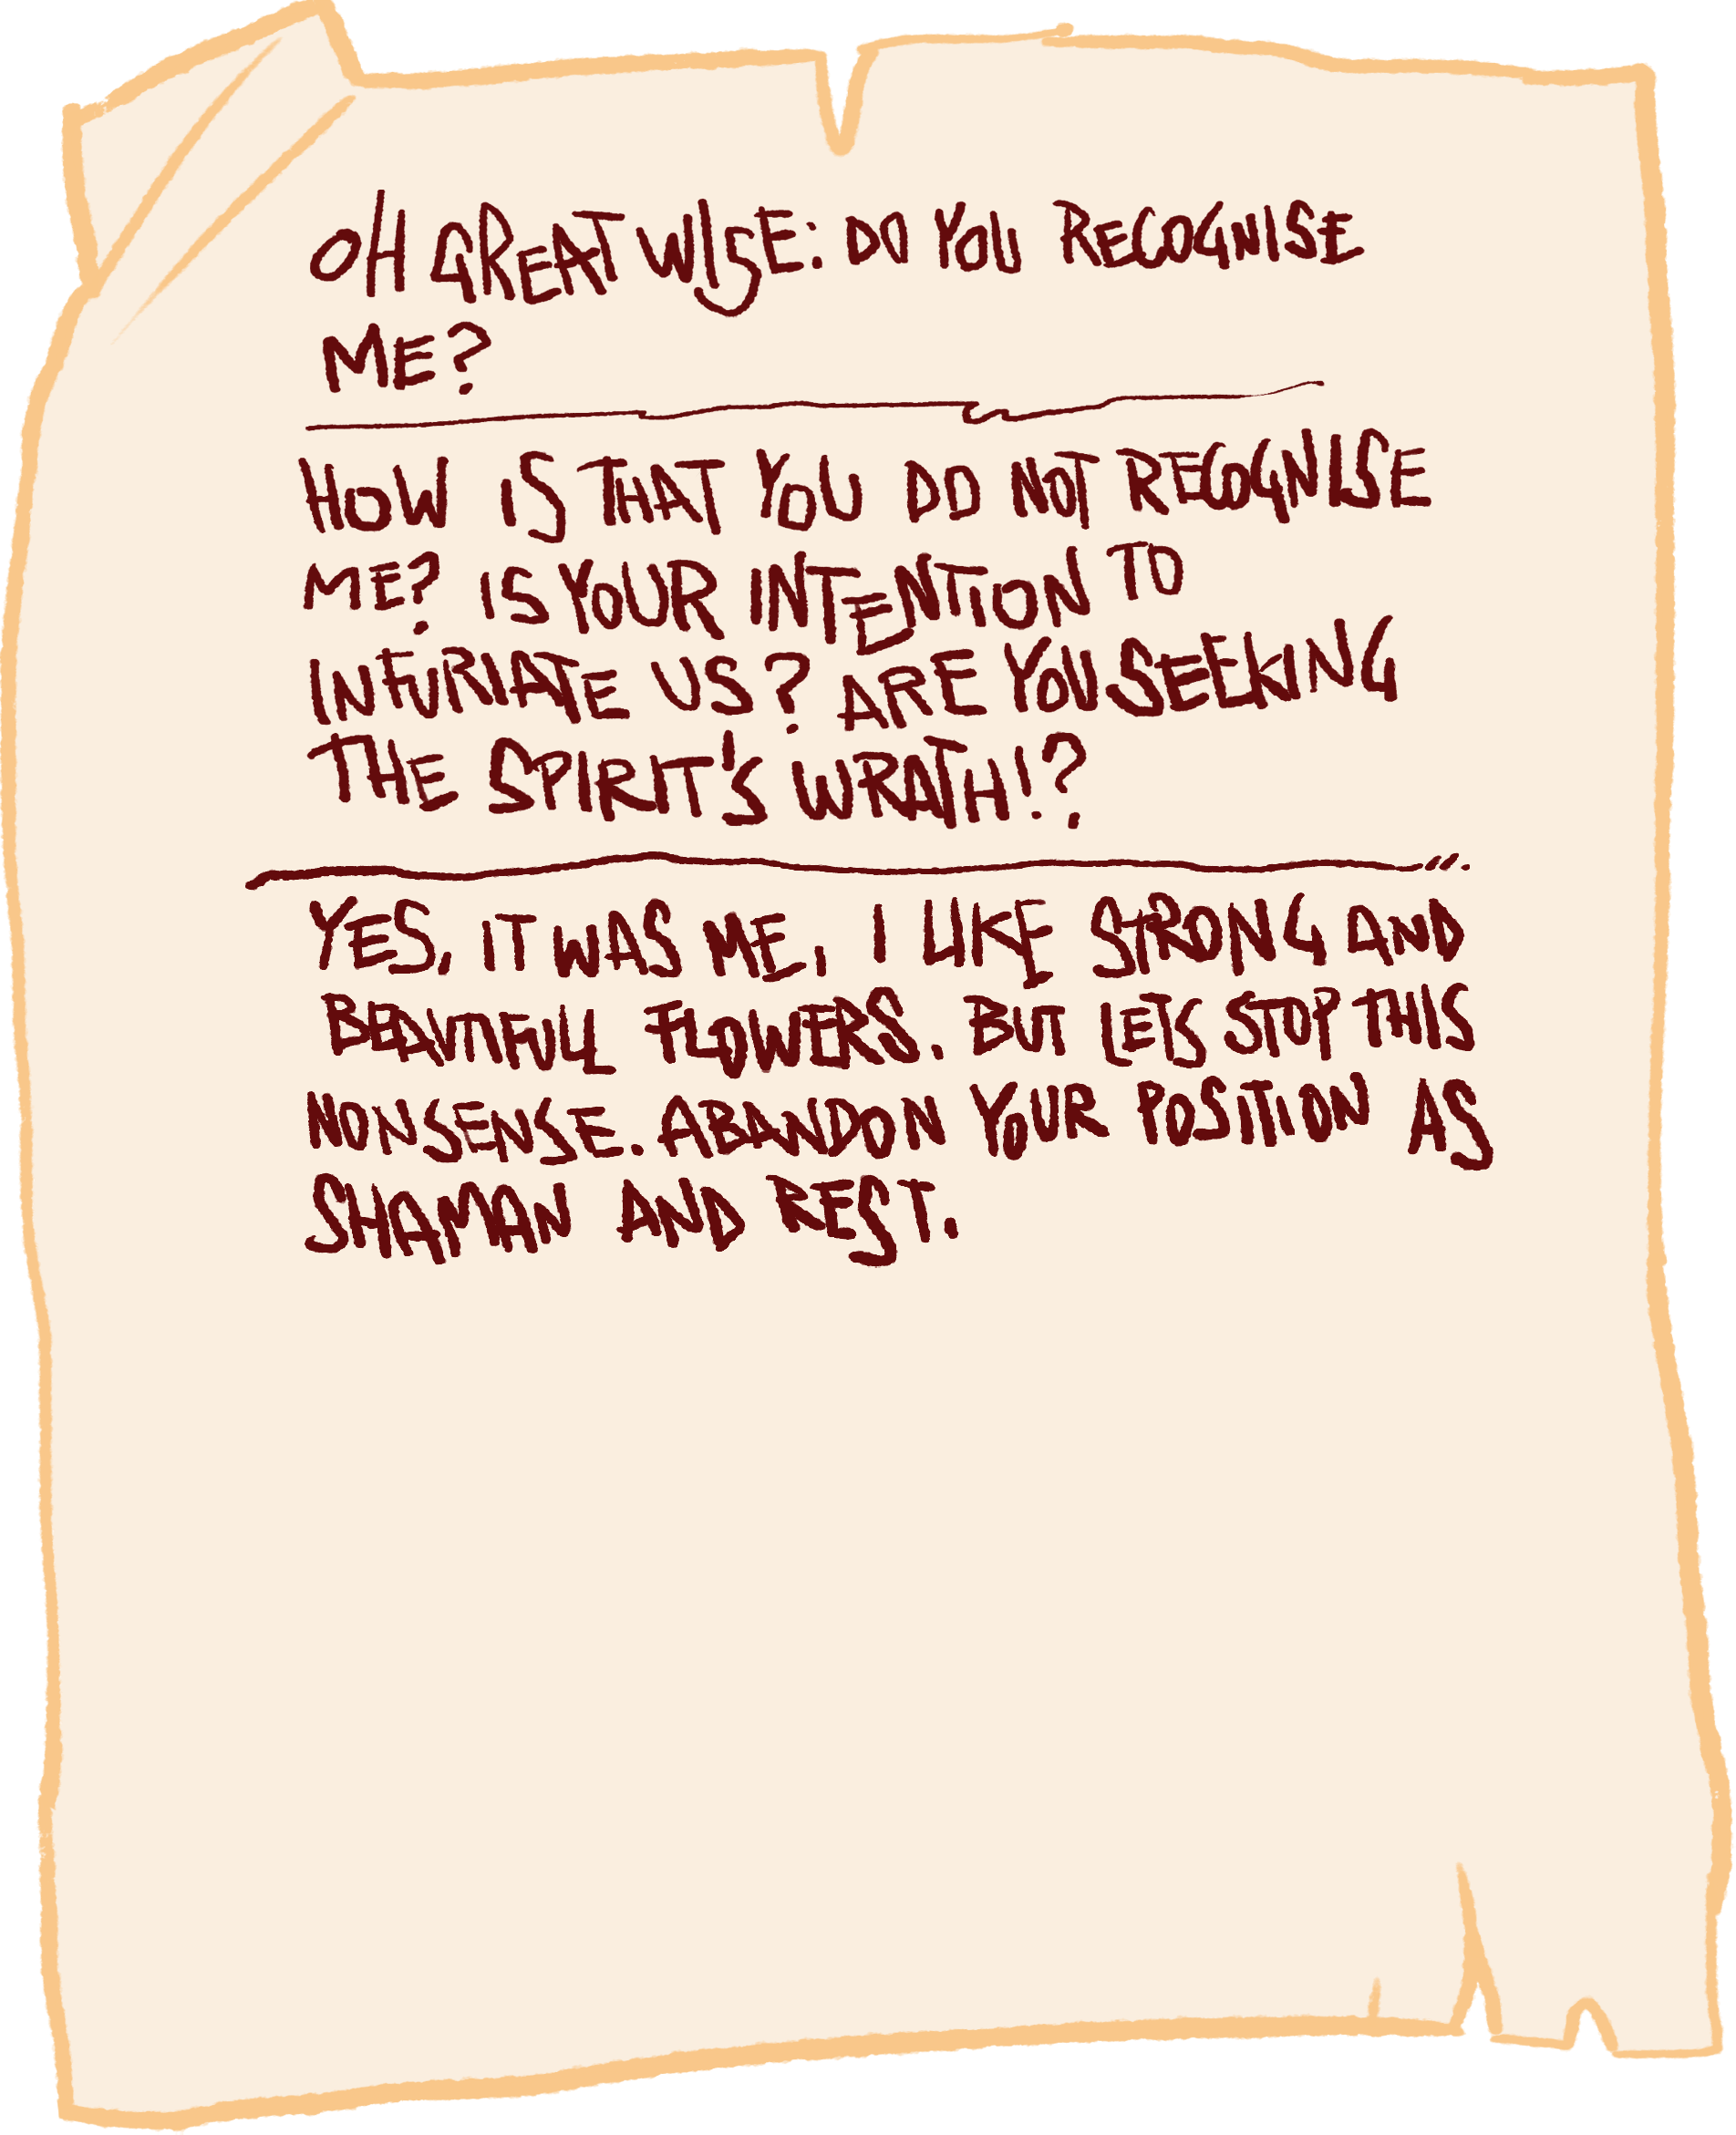 OH GREAT WISE: DO YOU RECOGNISE
ME?
HOW IS THAT YOU DO NOT RECOGNISE
ME? IS YOUR INTENTION TO
INFURIATE US? ARE YOU SEEKING
THE SPIRIT'S WRATH!?
YES, IT WAS ME, I LIKE STRONG AND
BEAUTIFULL FLOWERS. BUT LETS STOP THIS
NONSENSE. ABANDON YOUR POSITION AS
SHAMAN AND REST.